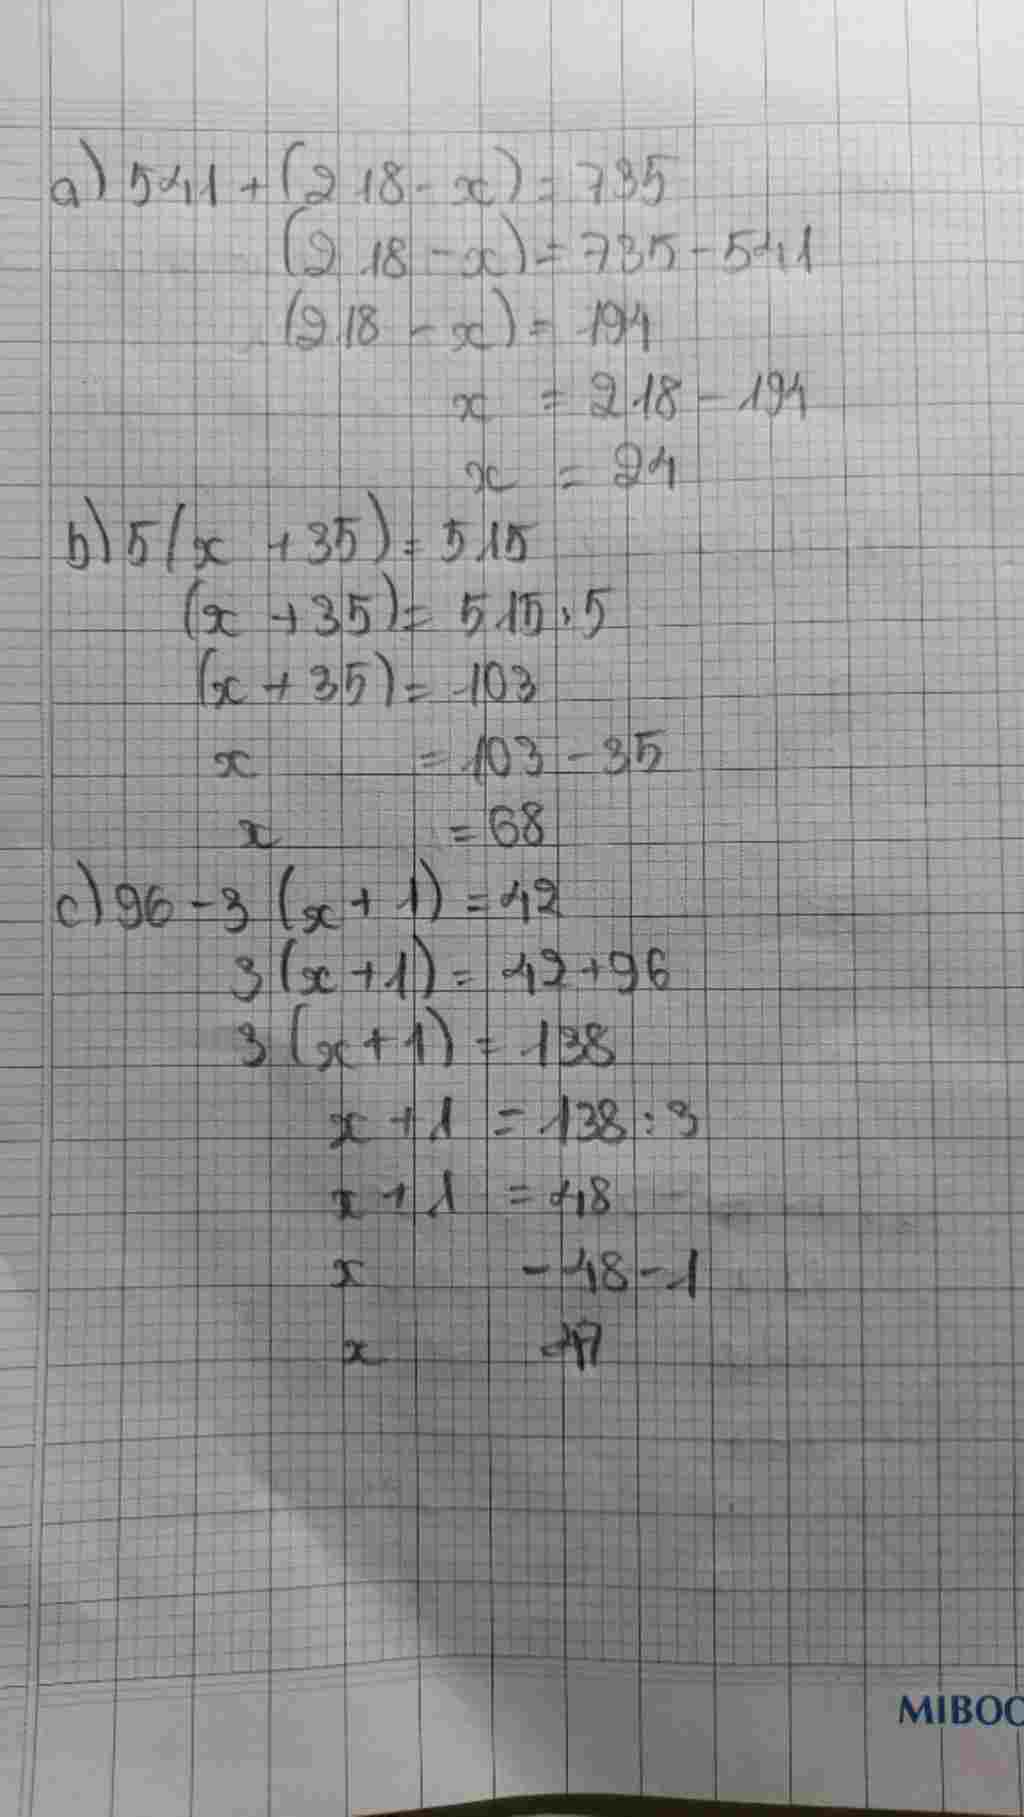 a) 541 + (218 - x) = 735
(218 - x) = 735 - 541
(218 - x) = 194
x = 218 - 194
x = 24
b) 5(x + 35) = 515
(x + 35) = 515 : 5
(x + 35) = 103
x = 103 - 35
x = 68
c) 96 - 3 (x + 1) = 42
3 (x + 1) = 42 + 96
3 (x + 1) = 138
x + 1 = 138 : 3
x + 1 = 48
x - 48 - 1
x 47
MIBOO